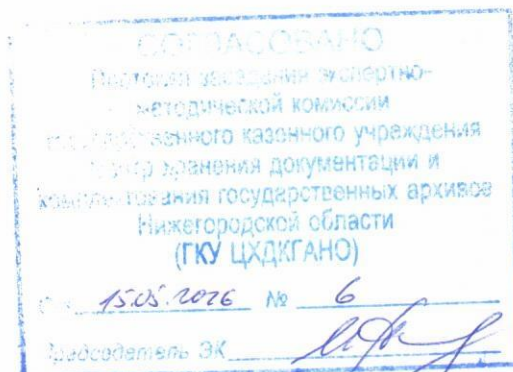 СОГЛАСОВАНО
Протокол заседания экспертно-
методической комиссии
государственного казенного учреждения
Центр хранения документации и
комплектования государственных архивов
Нижегородской области
(ГКУ ЦХДКГАНО)
15.05.2026 № 6
Председатель ЭК